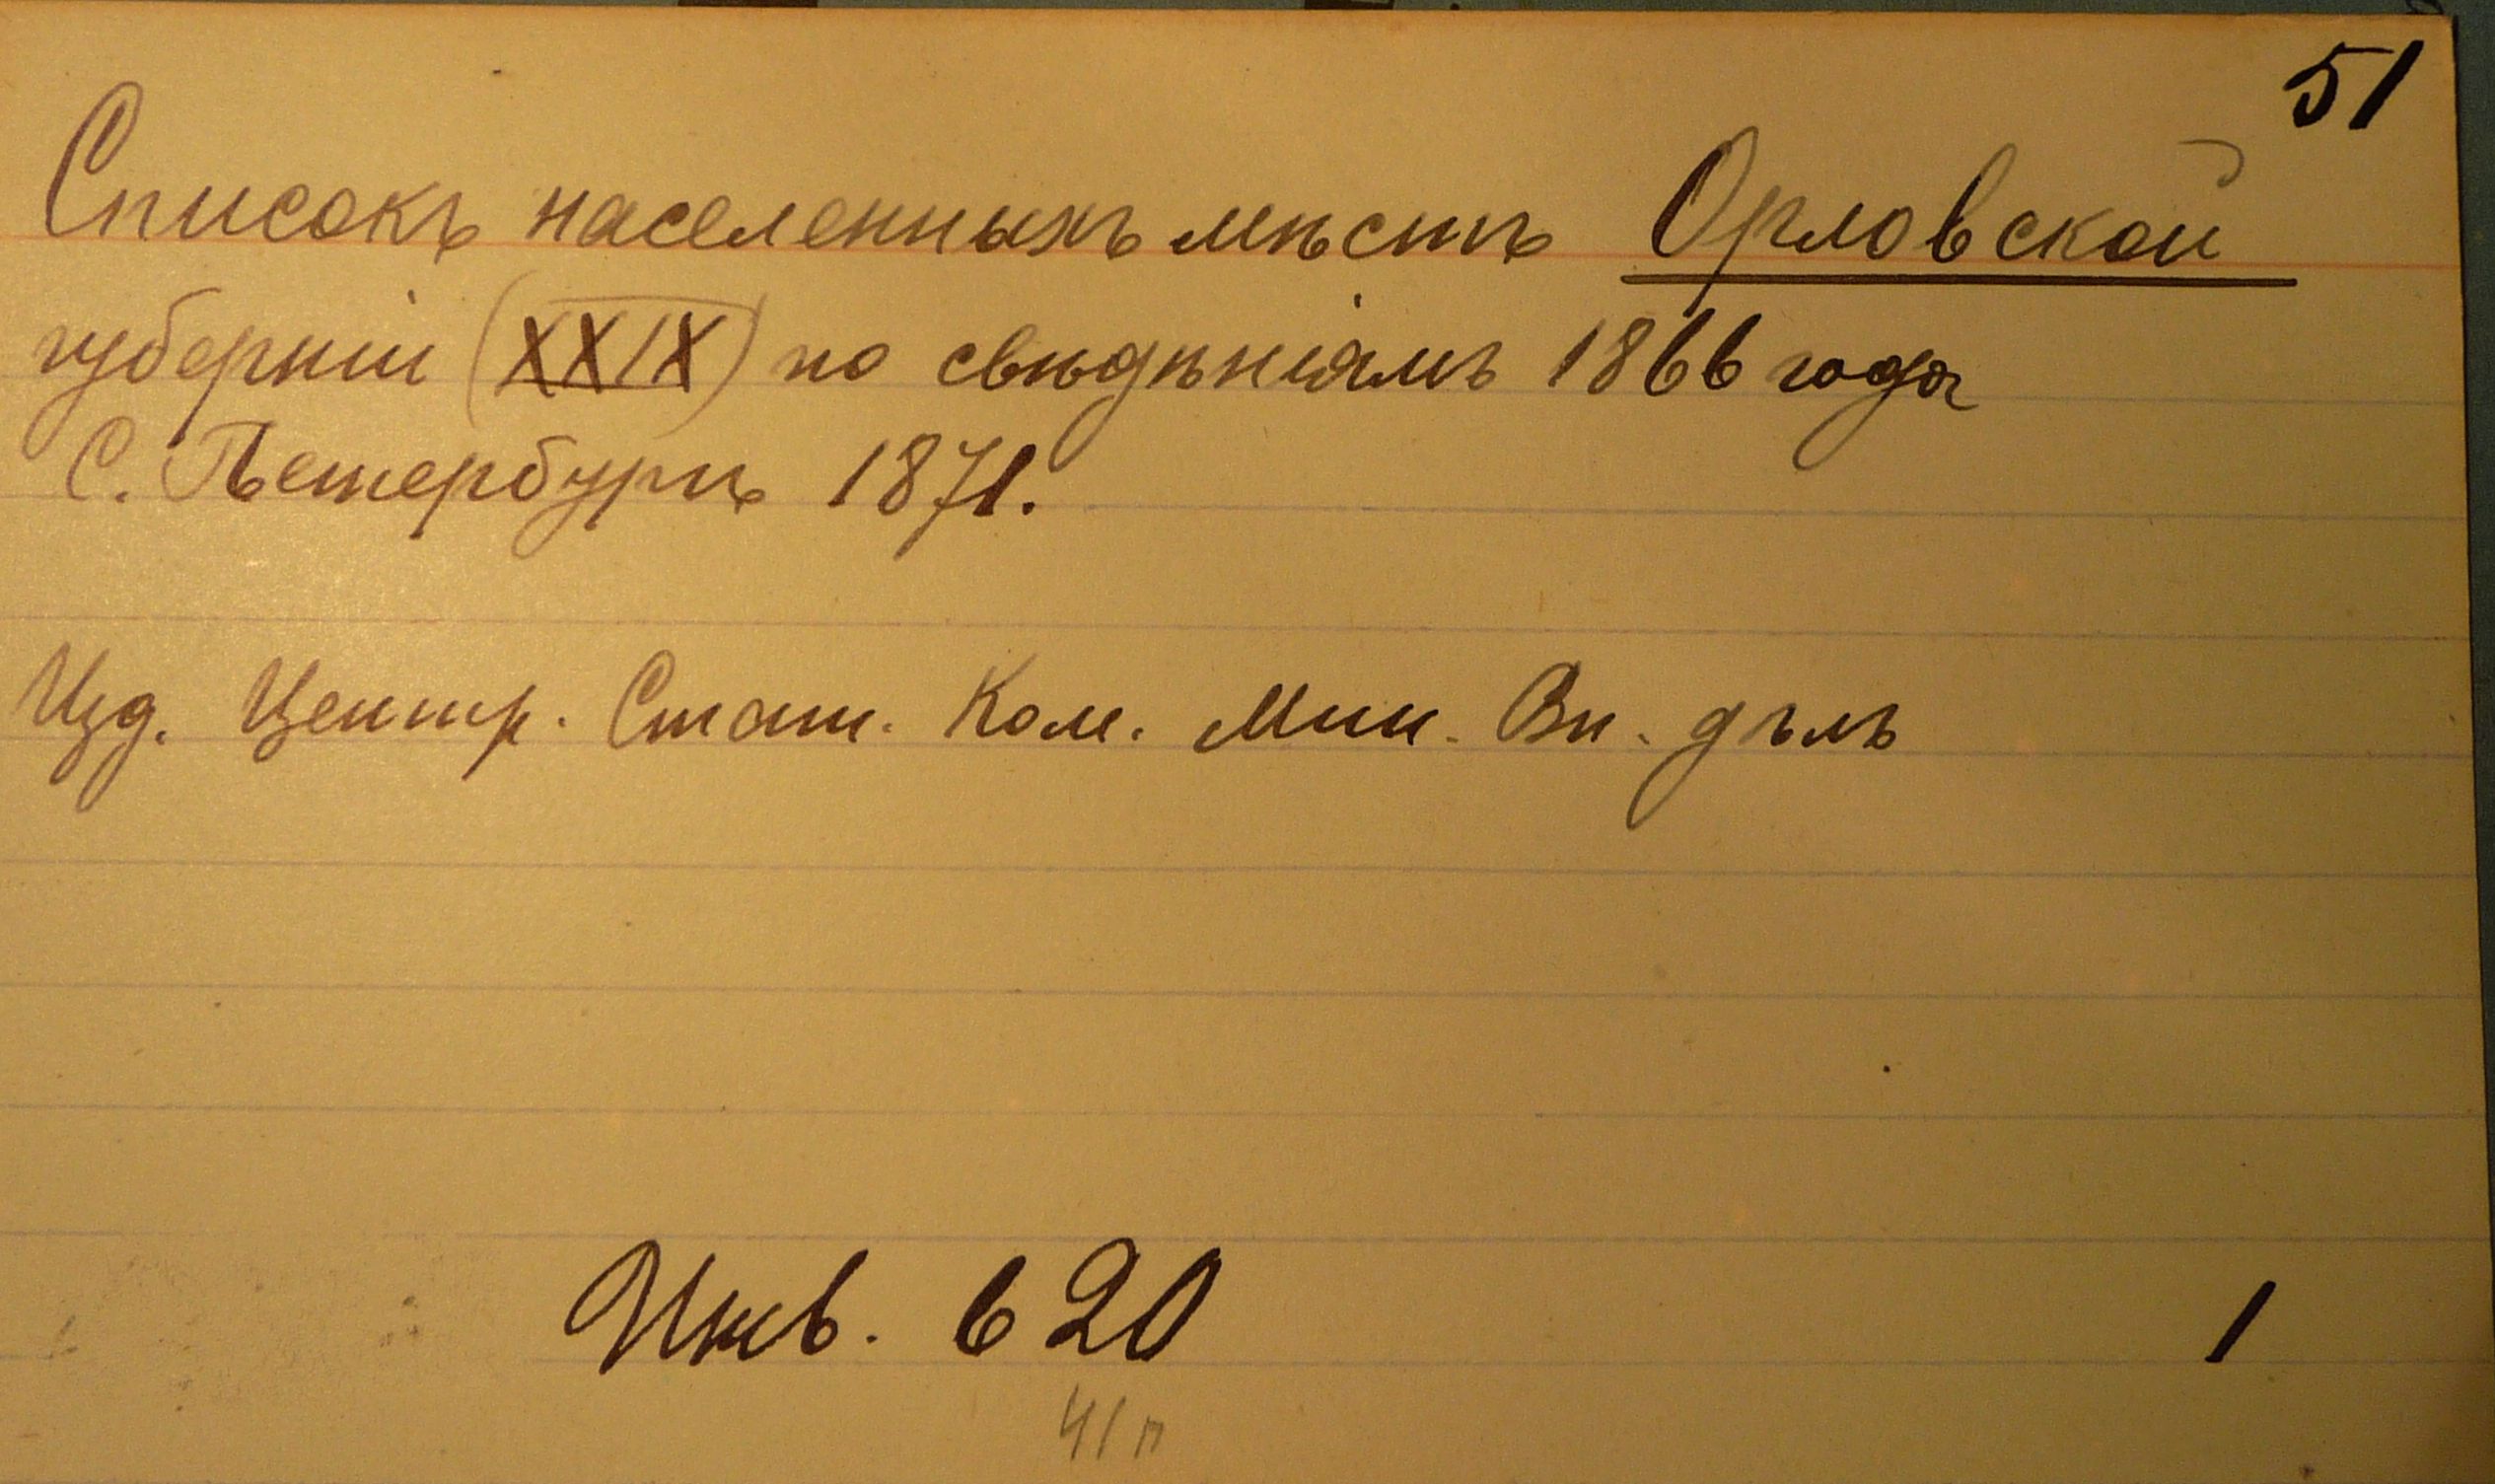 51
Списокъ населенныхъ мѣстъ Орловской
губерніи (XXIX) по свѣдѣніямъ 1866 года
С. Петербургъ 1871.
Изд. Центр. Стат. Ком. Мин. Вн. дѣлъ
Инв. 620 1
41п